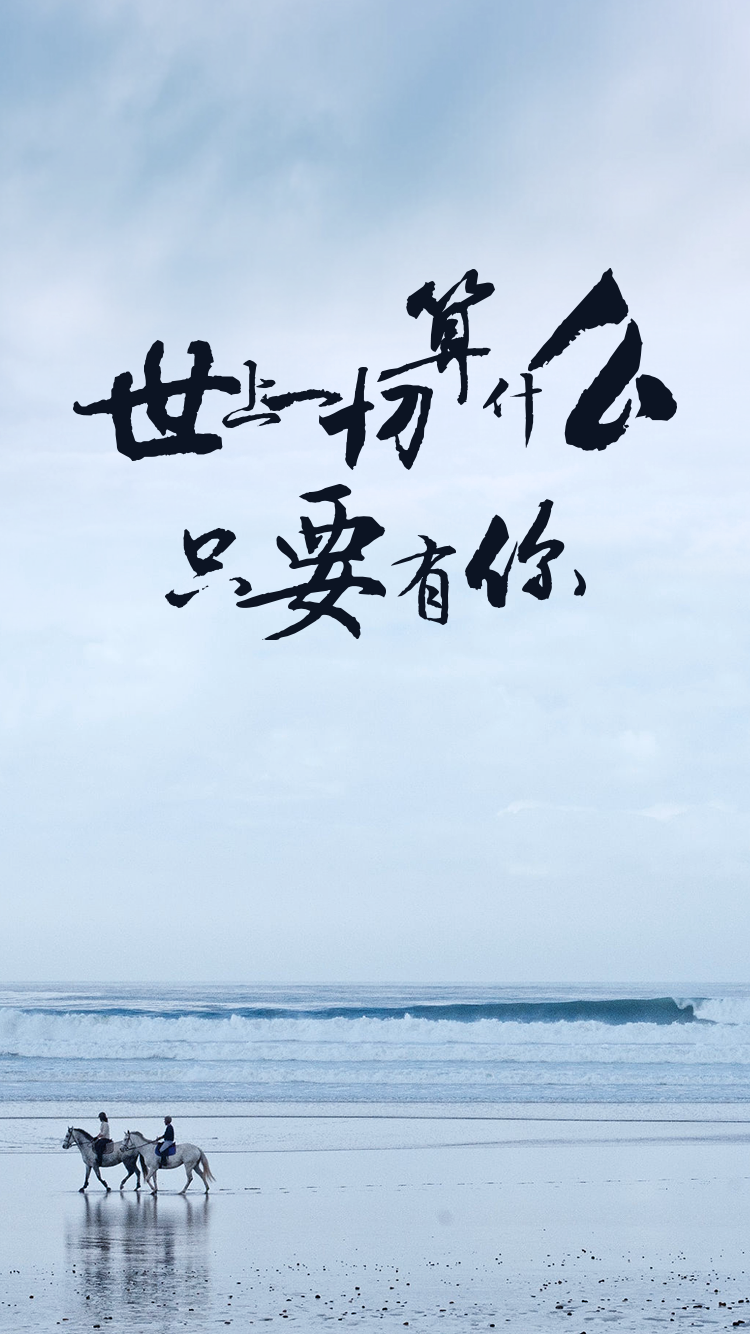 世上一切算什么
只要有你